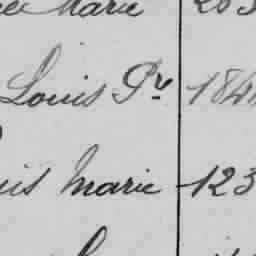 Marie 203
Louis Pre 184
uis Marie 123